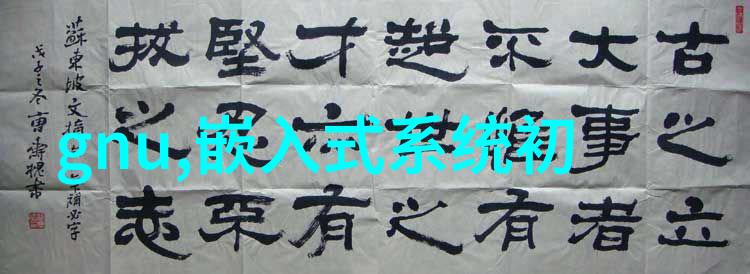 古之立
大事者
不惟有
超世之
才亦有
堅忍不
拔之志
蘇東坡文摘
下補必字
戊子之冬曹壽槐書
gnu,嵌入式系统初